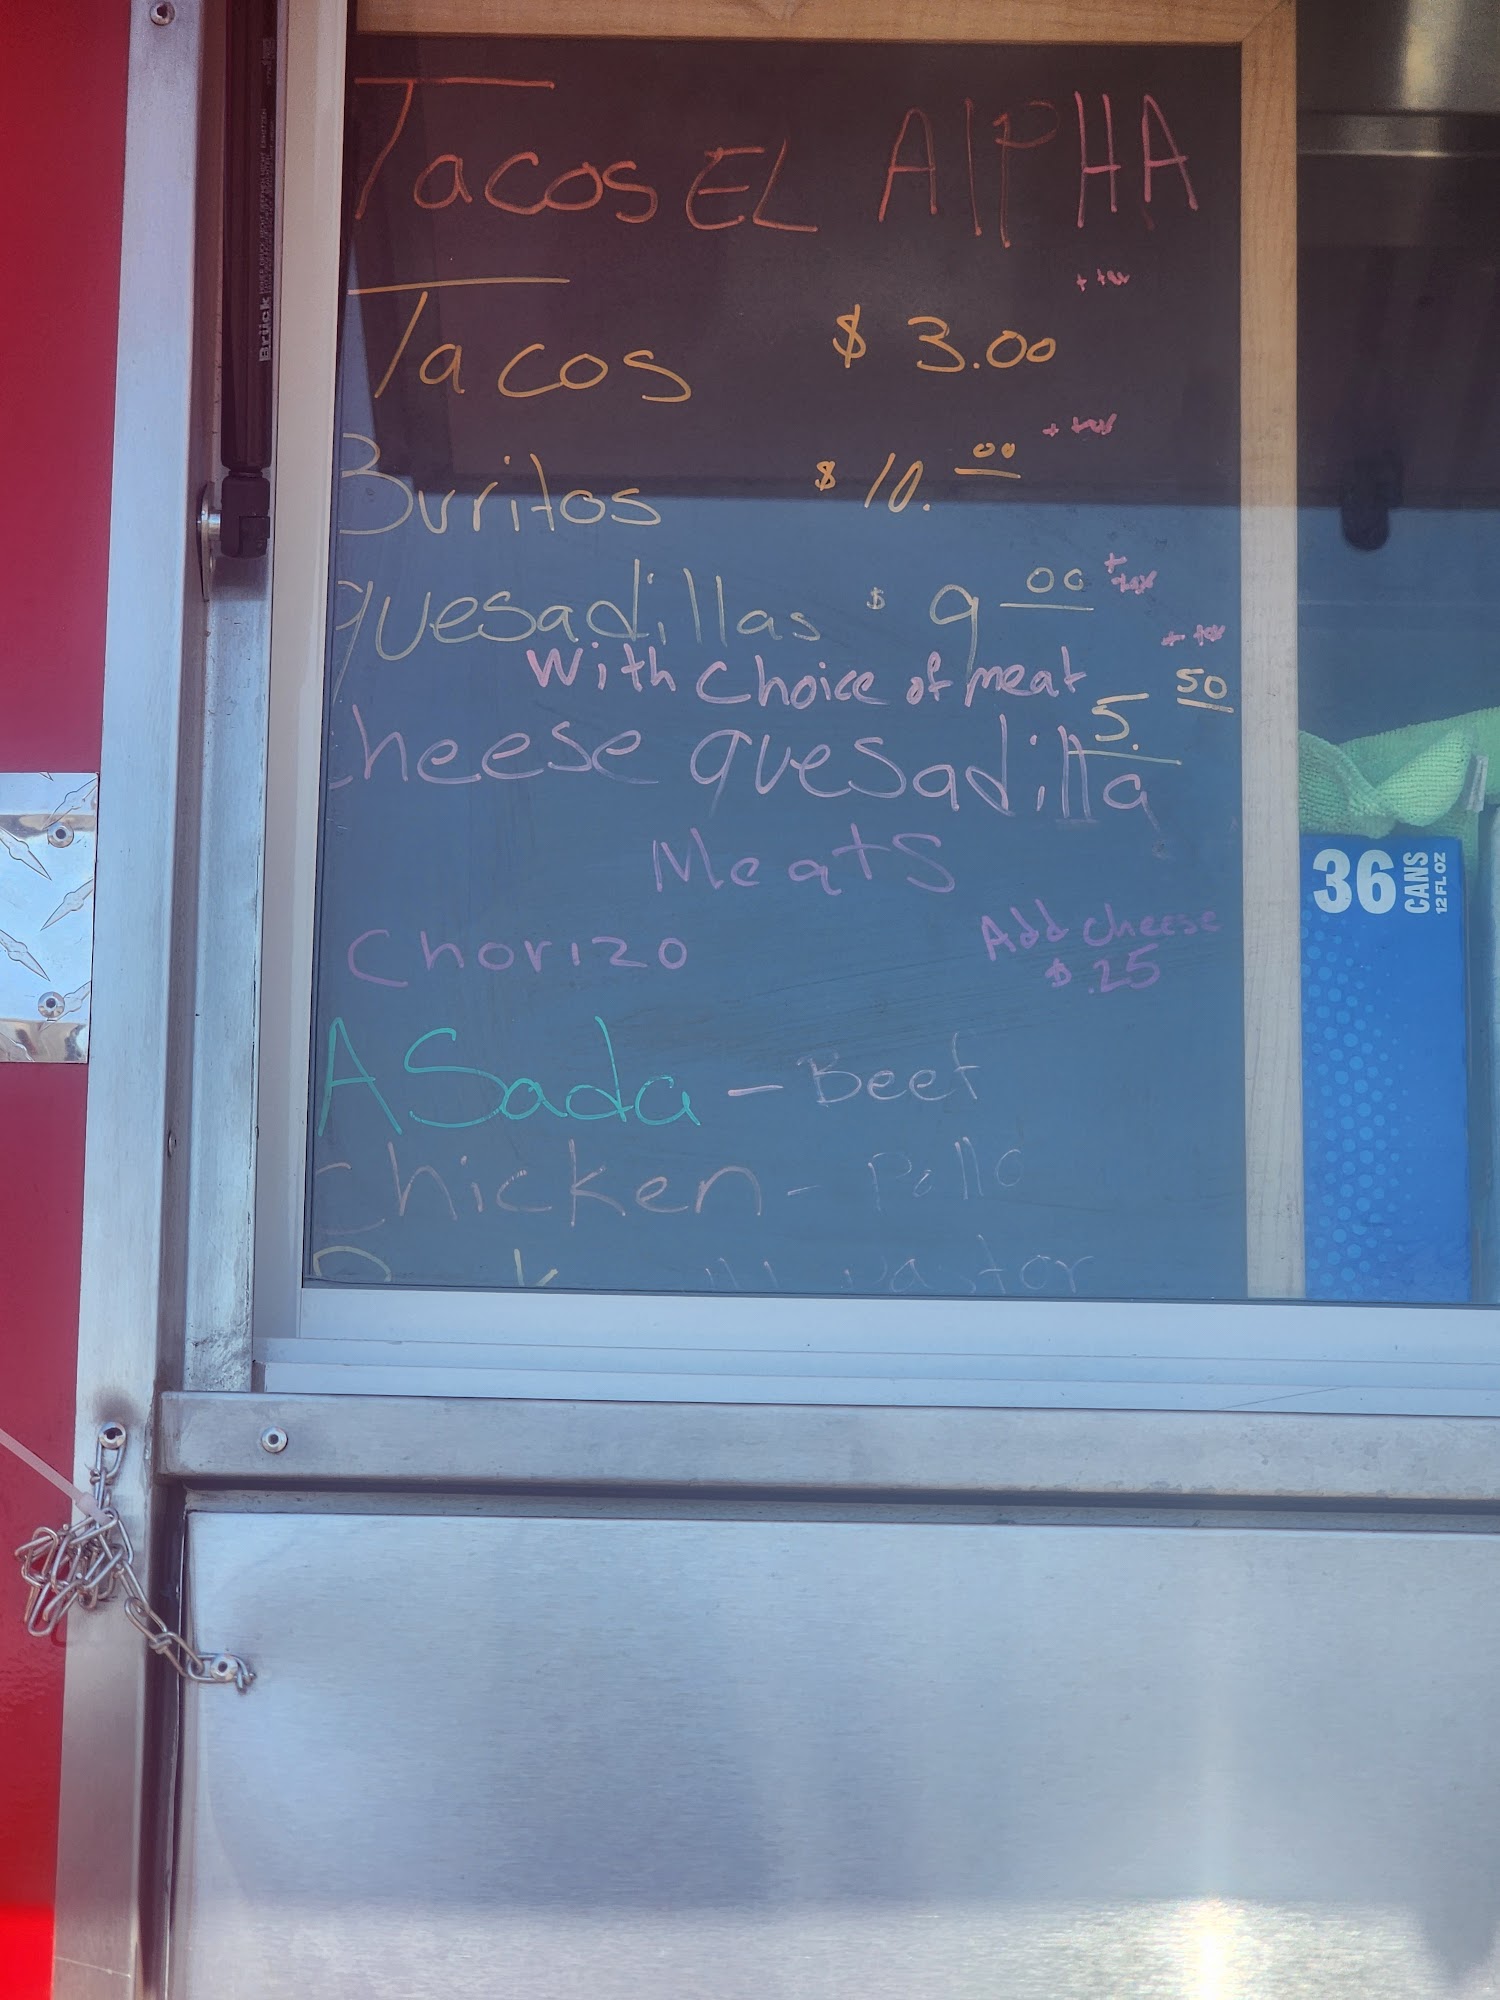 Tacos EL AlPHA
+ tax
Tacos $ 3.00
+ tax
Burritos $ 10.00
quesadillas $ 9 00 + tax
With Choice of meat
+ tax
cheese quesadilla 5.50
Meats
Chorizo
Add cheese
$.25
ASada - Beef
chicken - Pollo
pastor
36
CANS
12 FL OZ
Brück